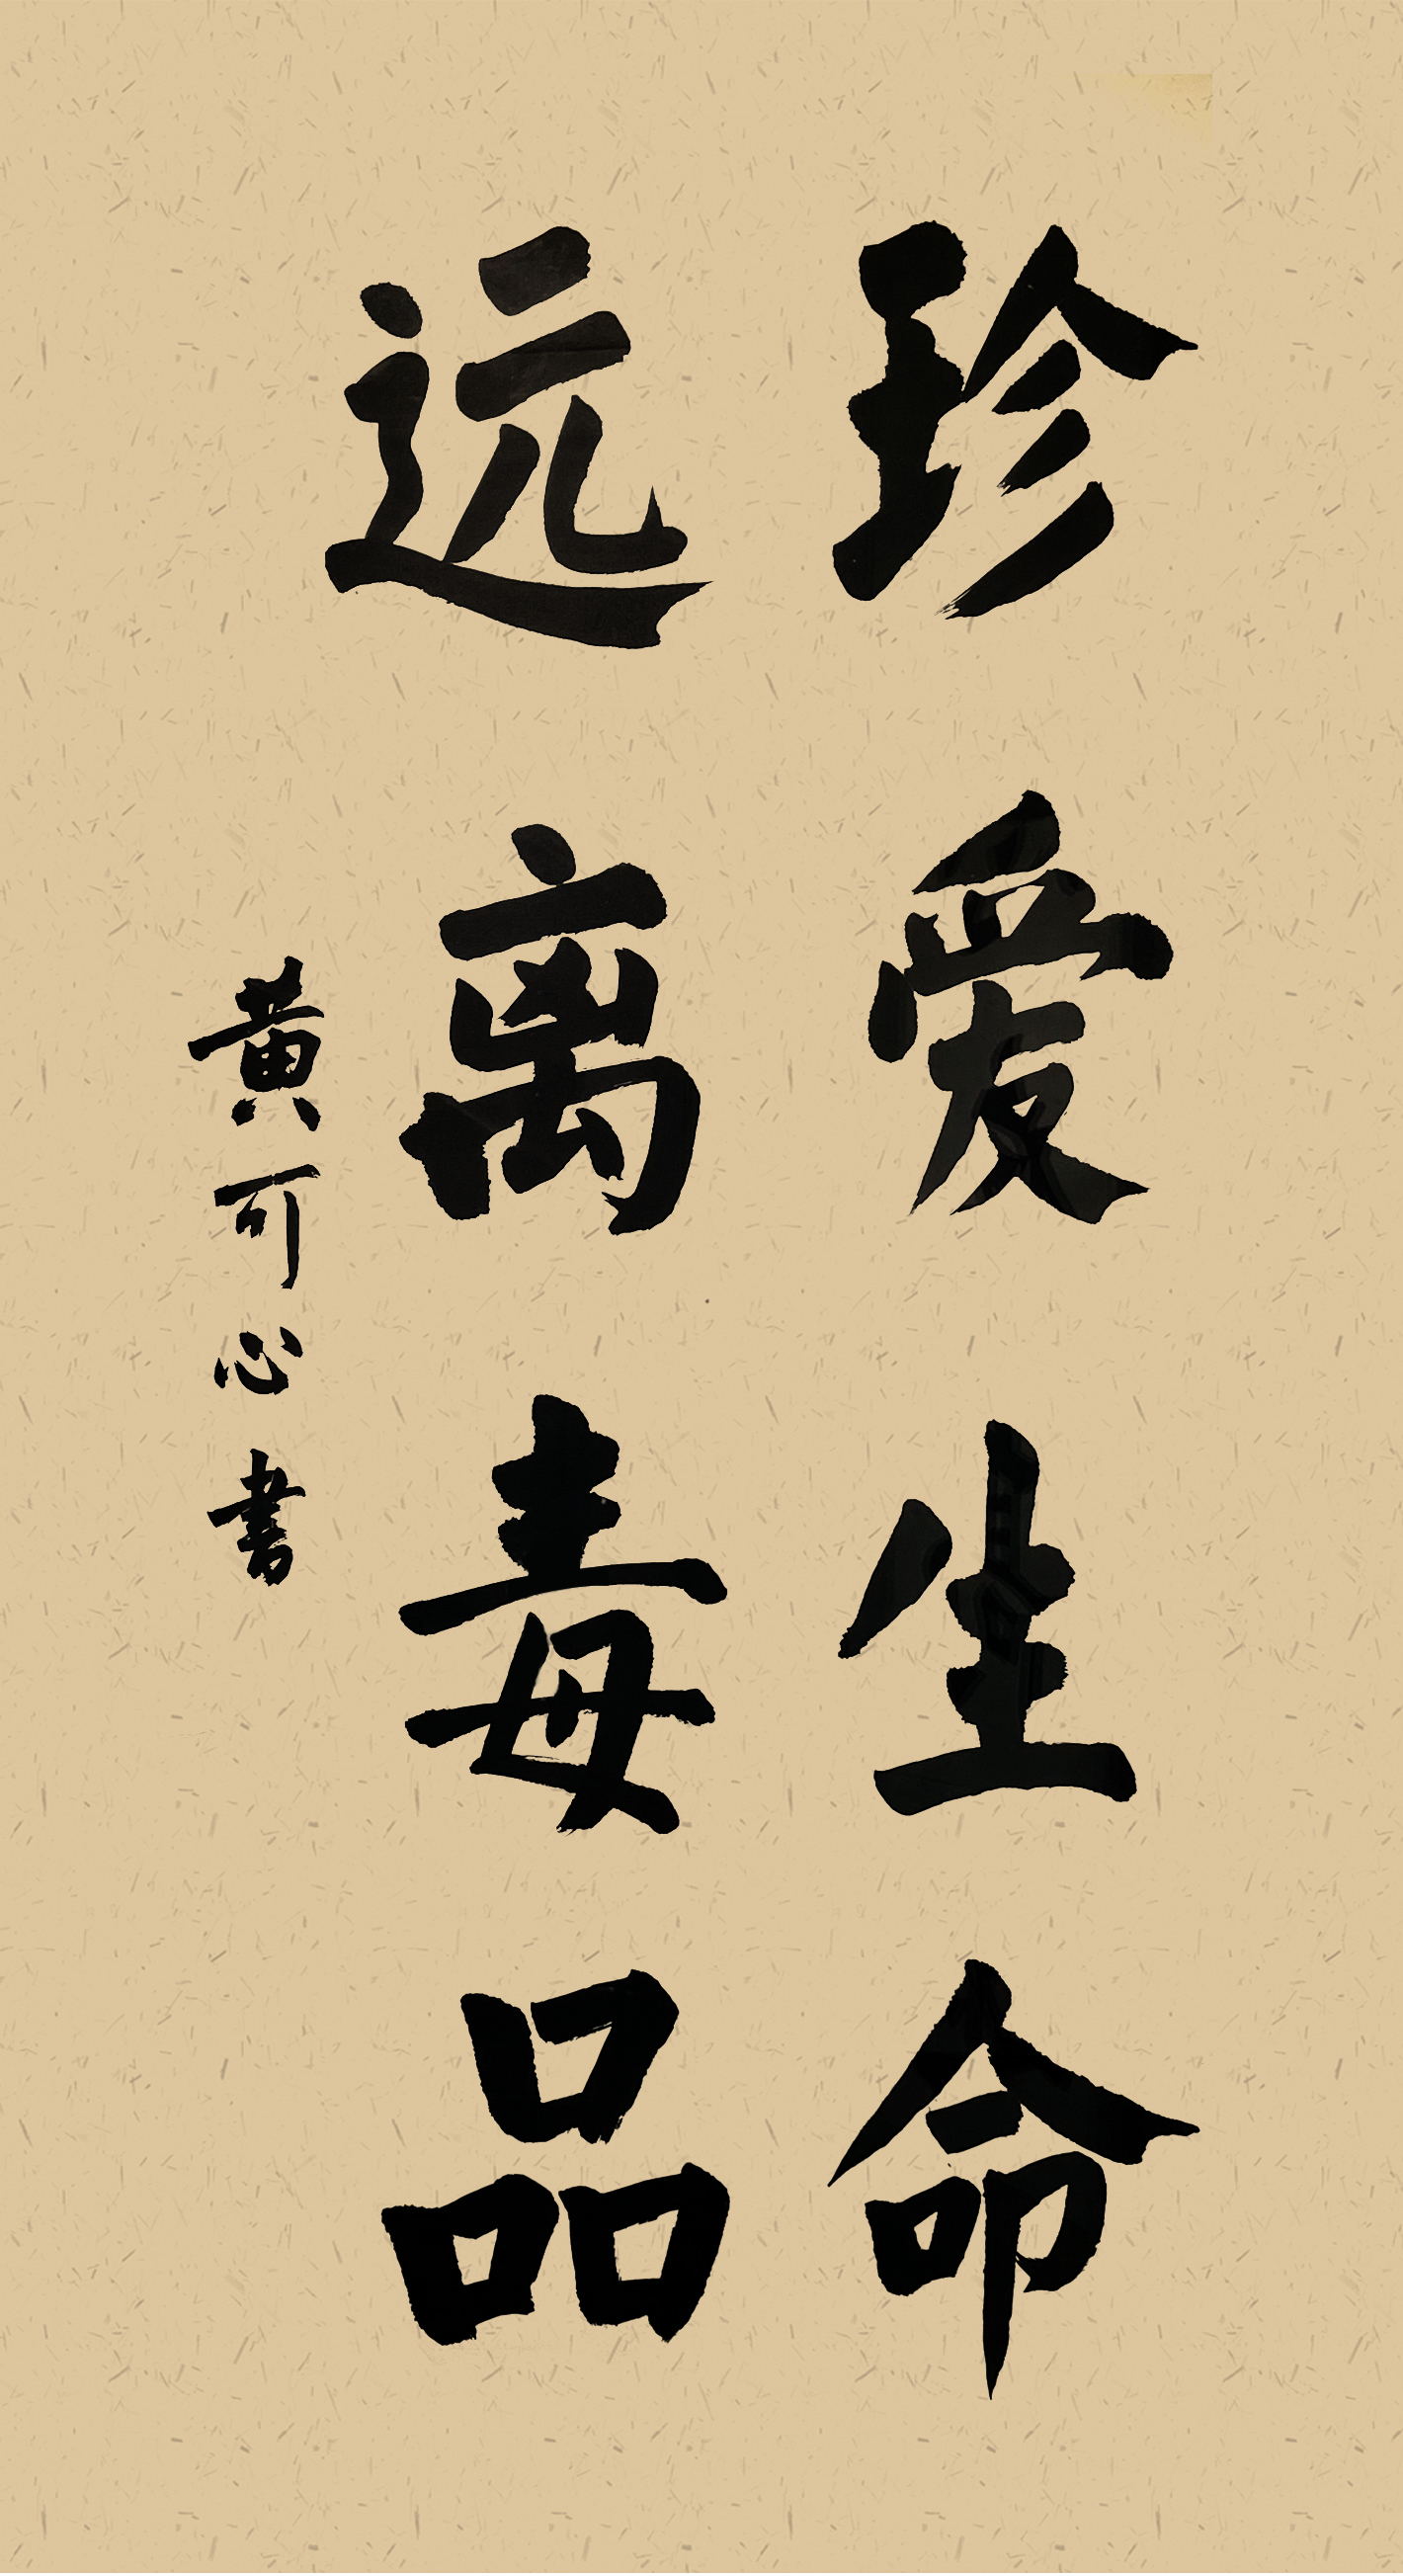 珍爱生命
远离毒品
黄可心书